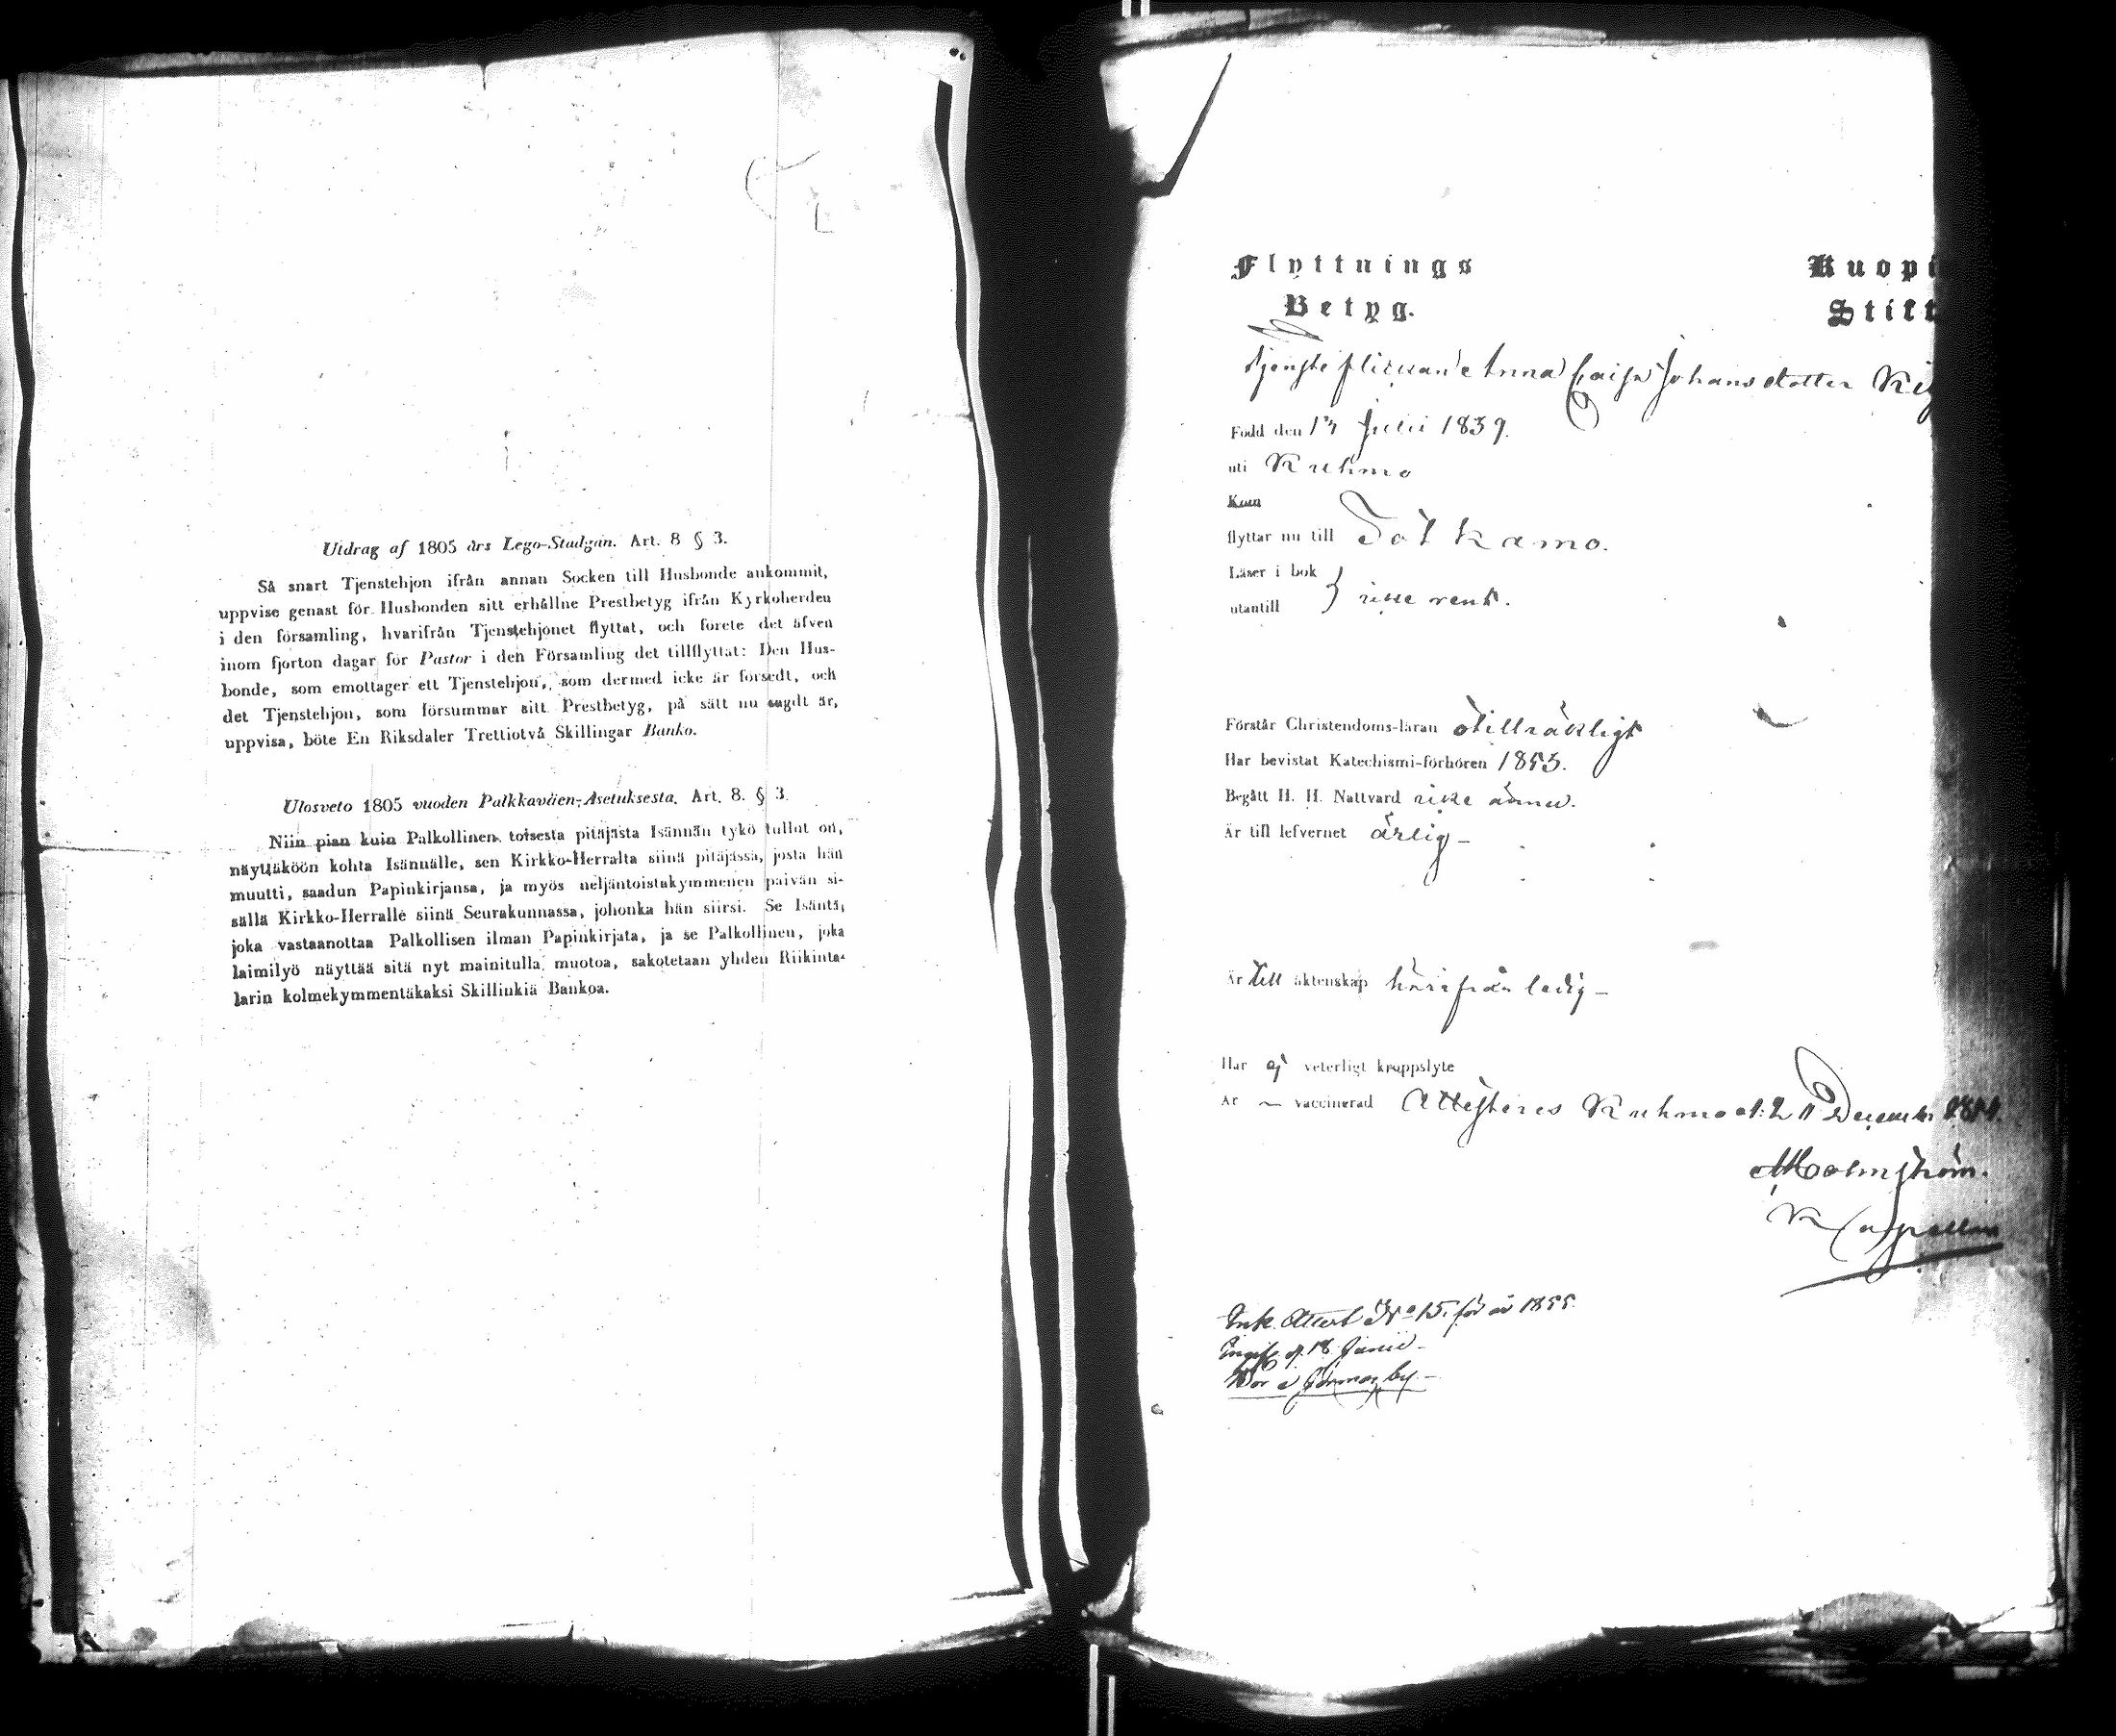 Utdrag af 1805 års Lego-Stadgan. Art. 8 § 3.
Så snart Tjenstehjon ifrån annan Socken till Husbonde ankommit,
uppvise genast för Husbonden sitt erhållne Prestbetyg ifrån Kyrkoherden
i den församling, hvarifrån Tjenstehjonet flyttat, och förete det äfven
inom fjorton dagar för Pastor i den Församling det tillflyttat: Den Hus-
bonde, som emottager ett Tjenstehjon, som dermed icke är försedt, och
det Tjenstehjon, som försummar sitt Prestbetyg, på sätt nu sagdt är,
uppvisa, böte En Riksdaler Trettiotvå Skillingar Banko.
Ulosveto 1805 vuoden Palkkaväen-Asetuksesta. Art. 8. § 3.
Niin pian kuin Palkollinen toisesta pitäjästä Isännän tykö tullut on,
näyttäköön kohta Isännälle, sen Kirkko-Herralta siinä pitäjässä, josta hän
muutti, saadun Papinkirjansa, ja myös neljäntoistakymmenen päivän si-
sällä Kirkko-Herralle siinä Seurakunnassa, johonka hän siirsi. Se Isäntä,
joka vastaanottaa Palkollisen ilman Papinkirjata, ja se Palkollinen, joka
laimilyö näyttää sitä nyt mainitulla muotoa, sakotetaan yhden Riikinta-
larin kolmekymmentäkaksi Skillinkiä Bankoa.
Flyttnings Kuopi
Betyg. Stift
Tjenste flickan Anna Caisa Johansdotter
Född den 13 Julii 1839.
uti Kuhmo
Kom
flyttar nu till Sotkamo.
Läser i bok
utantill } icke rent.
Förstår Christendoms-läran otillräkligt
Har bevistat Katechismi-förhören 1853.
Begått H. H. Nattvard icke ännu.
Är till lefvernet ärlig -
Är till äktenskap härifrån ledig -
Har ej veterligt kroppslyte
Är vaccinerad Attesteras Kuhmo d. 21 December
Malmström.
Kapellan
Ink. Attest No 15. för år 1855.
18 Junii -
by. -